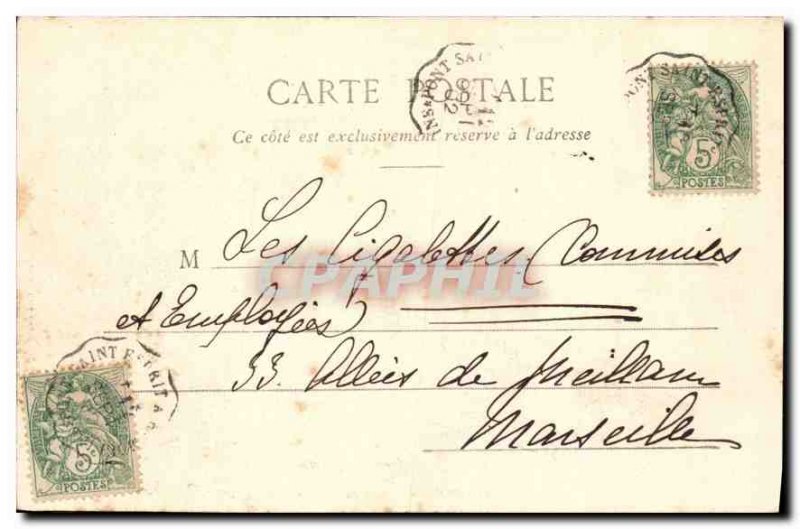 CARTE POSTALE
Ce côté est exclusivement réservé à l'adresse
M Les Cigalettes (Commises
et Employées)
33. Allées de Meillan
Marseille
5c
POSTES
PONT SAINT ESPRIT
5c
POSTES
SAINT ESPRIT
PONT SAI
CPAPHIL